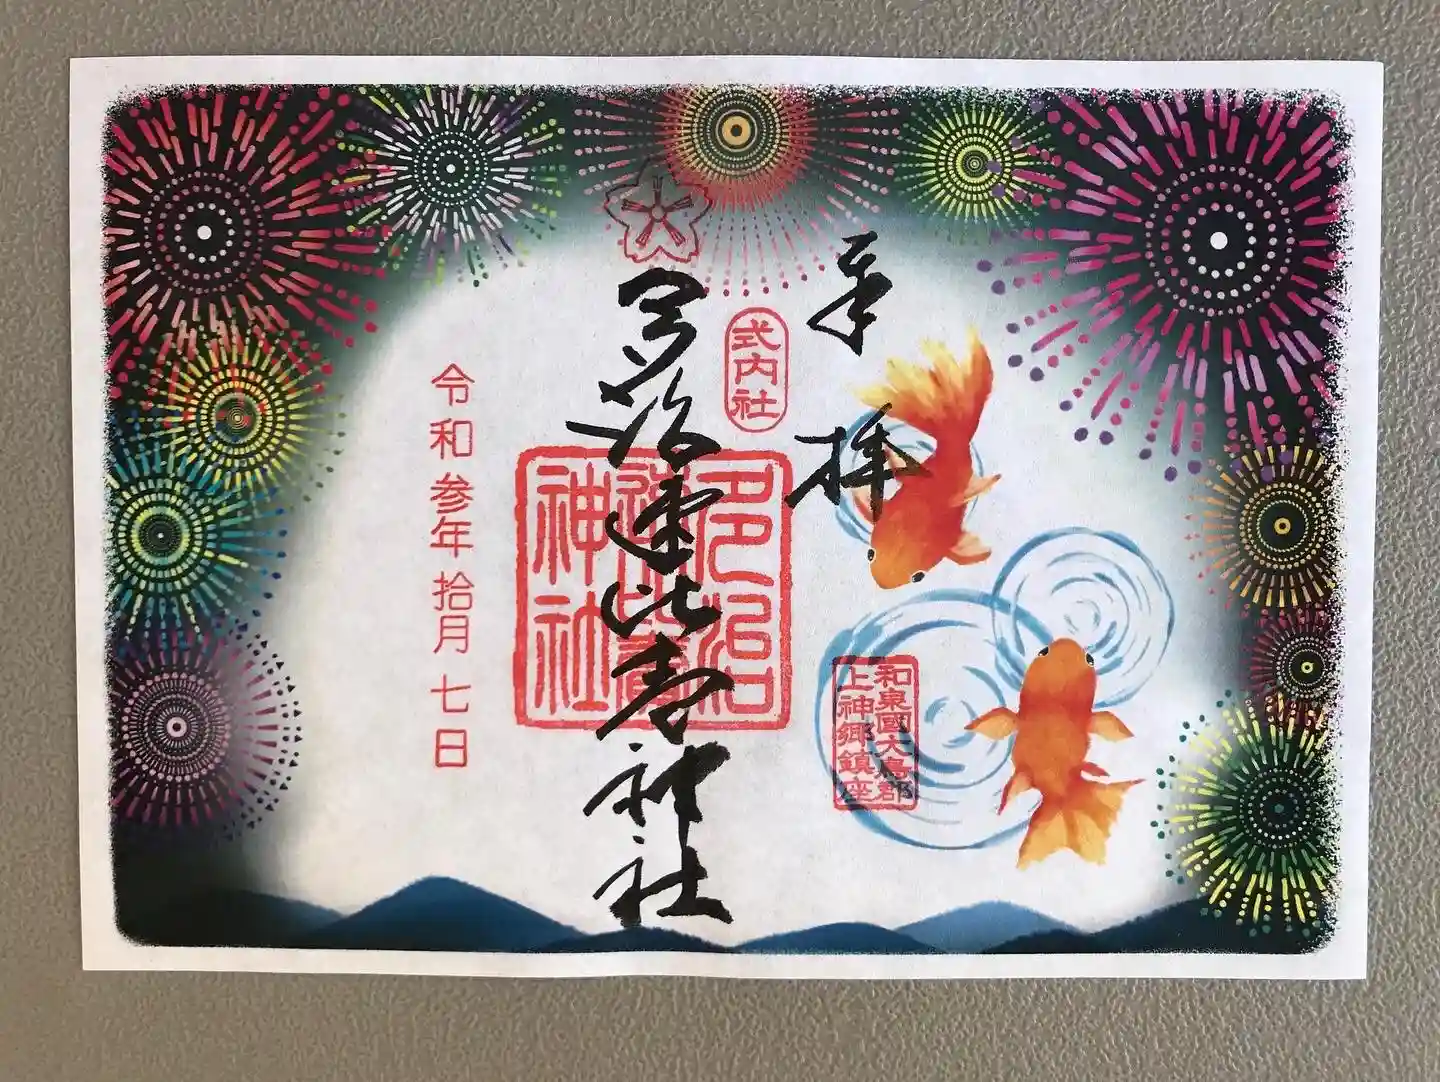 奉拝
式内社
和泉國大鳥郡
上神郷鎮座
多治速比売神社
多治
速比賣
神社
令和参年拾月七日